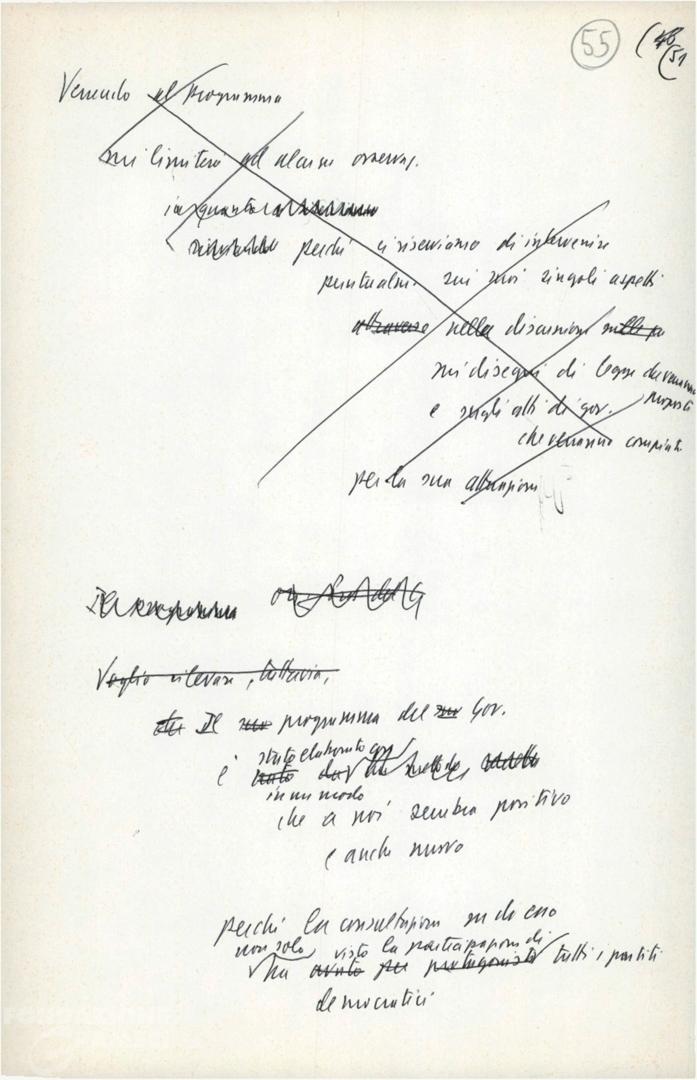 55 (46
(51
Venendo al Programma
mi limiterò ad alcune osservaz.
in quanto
perché ci riserviamo di intervenire
puntualm. sui suoi singoli aspetti
attraverso nella discussione sulle
sui disegni di legge che verranno
proposti
e sugli atti di gov.
che verranno compiuti
per la sua attuazione
Il programma
Voglio rilevare, tuttavia,
che Il suo programma del suo Gov.
stato elaborato
è nato
in un modo
che a noi sembra positivo
e anche nuovo
perché la consultazione su di esso
non solo visto la partecipazione di
ha avuto per protagonisti tutti i partiti
democratici